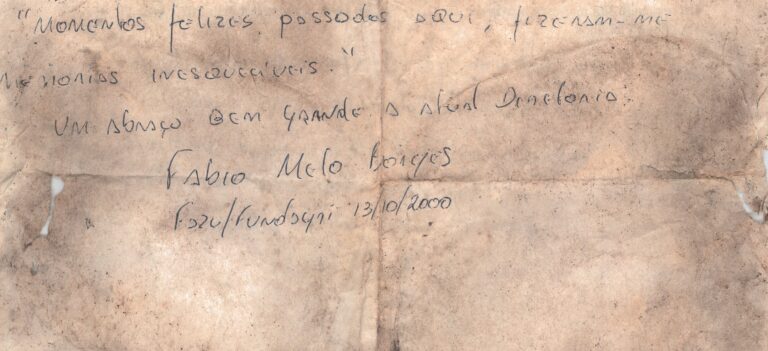 "Momentos felizes passados aqui, fizeram-me
memorias inesquecíveis."
Um abraço bem grande a atual Diretoria.
Fabio Melo Borges
Fazu/Fundagri 13/10/2000